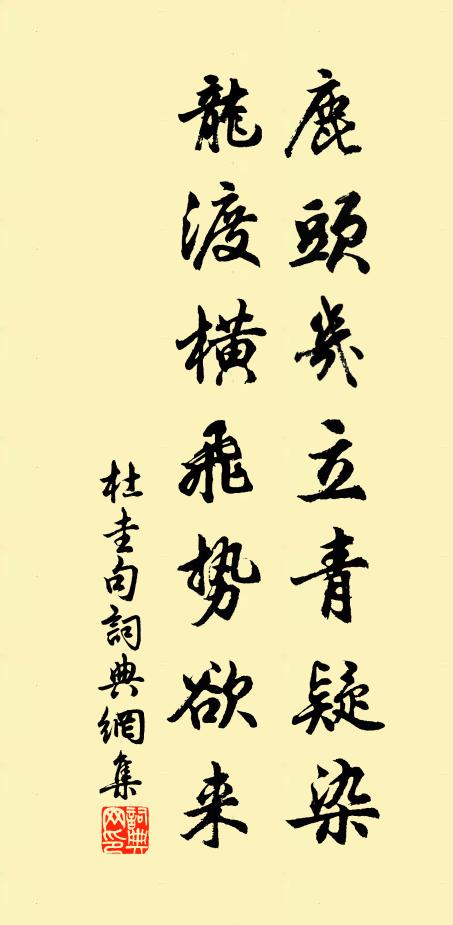 鹿頭幾立青疑染
龍渡橫飛勢欲来
杜圭句詞典網集
詞典网印